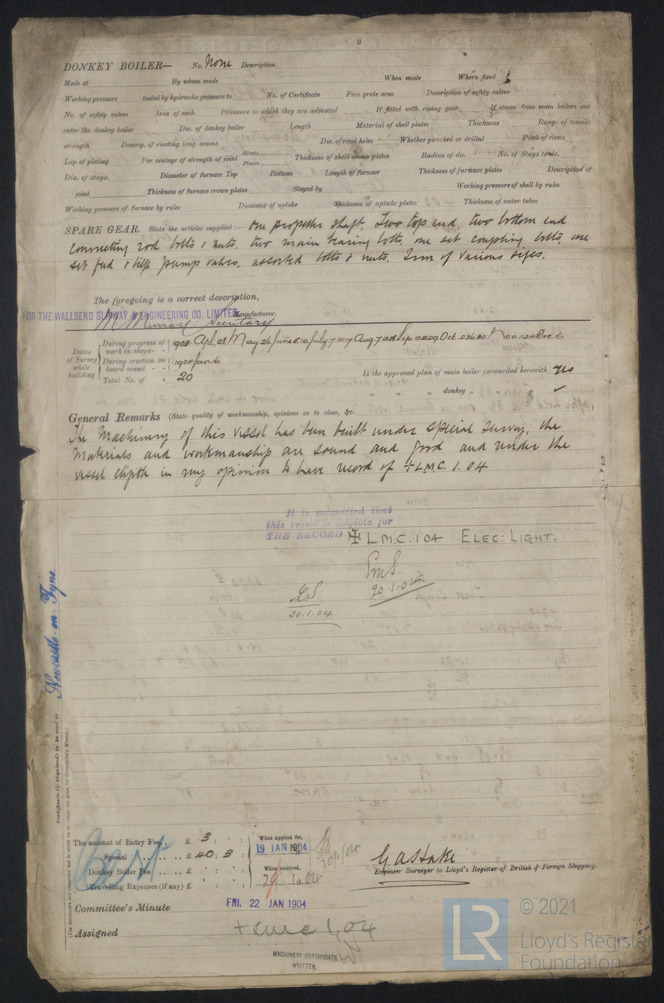 DONKEY BOILER— No. None Description
Made at By whom made When made Where fixed
Working pressure tested by hydraulic pressure to No. of Certificate Fire grate area Description of safety valves
No. of safety valves Area of each Pressure to which they are adjusted If fitted with easing gear If steam from main boilers can
enter the donkey boiler Dia. of donkey boiler Length Material of shell plates Thickness Range of tensile
strength Descrip. of riveting long. seams Dia. of rivet holes Whether punched or drilled Pitch of rivets
Lap of plating Per centage of strength of joint Rivets Plates Thickness of shell crown plates Radius of do. No. of Stays to do.
Dia. of stays. Diameter of furnace Top Bottom Length of furnace Thickness of furnace plates Description of
joint Thickness of furnace crown plates Stayed by Working pressure of shell by rules
Working pressure of furnace by rules Diameter of uptake Thickness of uptake plates Thickness of water tubes
SPARE GEAR. State the articles supplied:— One propeller shaft. Two top end, two bottom end
connecting rod bolts & nuts, two main bearing bolts, one set coupling bolts, one
set feed & bilge pump valves, assorted bolts & nuts. Iron of various sizes.
The foregoing is a correct description,
FOR THE WALLSEND SLIPWAY & ENGINEERING CO. LIMITED Manufacturer.
Secretary
Dates of Survey while building
During progress of work in shops--
During erection on board vessel--
Total No. of 20
Is the approved plan of main boiler forwarded herewith yes
" " " donkey " " "
General Remarks (State quality of workmanship, opinions as to class, &c.
The Machinery of this vessel has been built under special survey, the
Materials and workmanship are sound and good and render the
vessel eligible in my opinion to have record of + LMC. 1.04
It is submitted that
this vessel is eligible for
THE RECORD ✠ L.M.C. 1 04 ELEC: LIGHT.
20.1.04
20.1.04
Newcastle-on-Tyne.
The amount of Entry Fee.. £ 3 : :
Special .. .. £ 40 . 3 :
Donkey Boiler Fee .. £ : :
Travelling Expenses (if any) £ : :
When applied for,
19 JAN 1904
When received,
Engineer Surveyor to Lloyd's Register of British & Foreign Shipping.
Committee's Minute FRI. 22 JAN 1904
Assigned + LMC 1,04
MACHINERY CERTIFICATE
WRITTEN.
LR © 2021
Lloyd's Register
Foundation